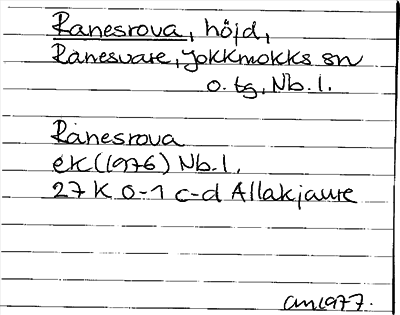 Ranesrova, höjd,
Ranesvare, Jokkmokks sn
o. tg, Nb. l.
Ranesrova
ek (1976) Nb. l.
27 K 0-1 c-d Allakjaure
am 1977.